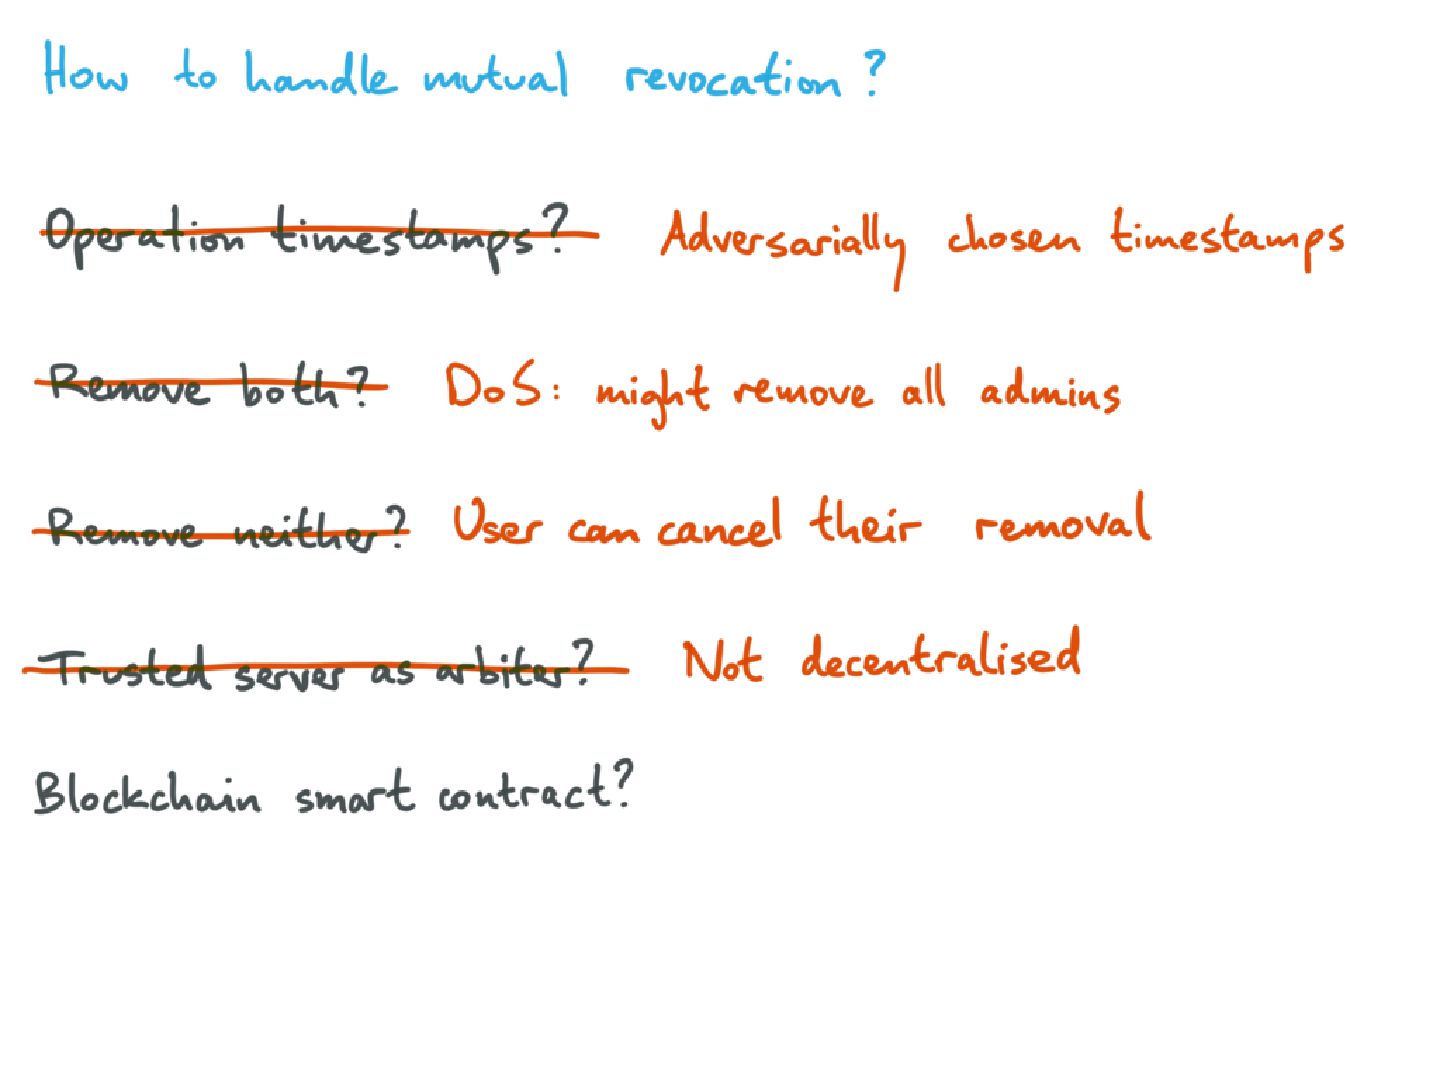 How to handle mutual revocation?
Operation timestamps? Adversarially chosen timestamps
Remove both? DoS: might remove all admins
Remove neither? User can cancel their removal
Trusted server as arbiter? Not decentralised
Blockchain smart contract?